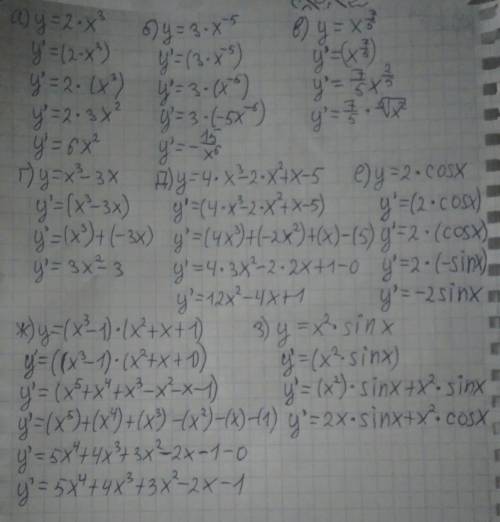 а) y=2·x³
y'=(2·x³)
y'=2·(x³)
y'=2·3x²
y'=6x²
б) y=3·x⁻⁵
y'=(3·x⁻⁵)
y'=3·(x⁻⁵)
y'=3·(-5x⁻⁶)
y'=-15/x⁶
в) y=x^(7/5)
y'=(x^(7/5))
y'=7/5 x^(2/5)
y'=7/5·⁵√x²
г) y=x³-3x
y'=(x³-3x)
y'=(x³)+(-3x)
y'=3x²-3
д) y=4·x³-2·x²+x-5
y'=(4·x³-2·x²+x-5)
y'=(4x³)+(-2x²)+(x)-(5)
y'=4·3x²-2·2x+1-0
y'=12x²-4x+1
е) y=2·cosx
y'=(2·cosx)
y'=2·(cosx)
y'=2·(-sinx)
y'=-2sinx
ж) y=(x³-1)·(x²+x+1)
y'=((x³-1)·(x²+x+1))
y'=(x⁵+x⁴+x³-x²-x-1)
y'=(x⁵)+(x⁴)+(x³)-(x²)-(x)-(1)
y'=5x⁴+4x³+3x²-2x-1-0
y'=5x⁴+4x³+3x²-2x-1
з) y=x²·sinx
y'=(x²·sinx)
y'=(x²)·sinx+x²·sinx
y'=2x·sinx+x²·cosx